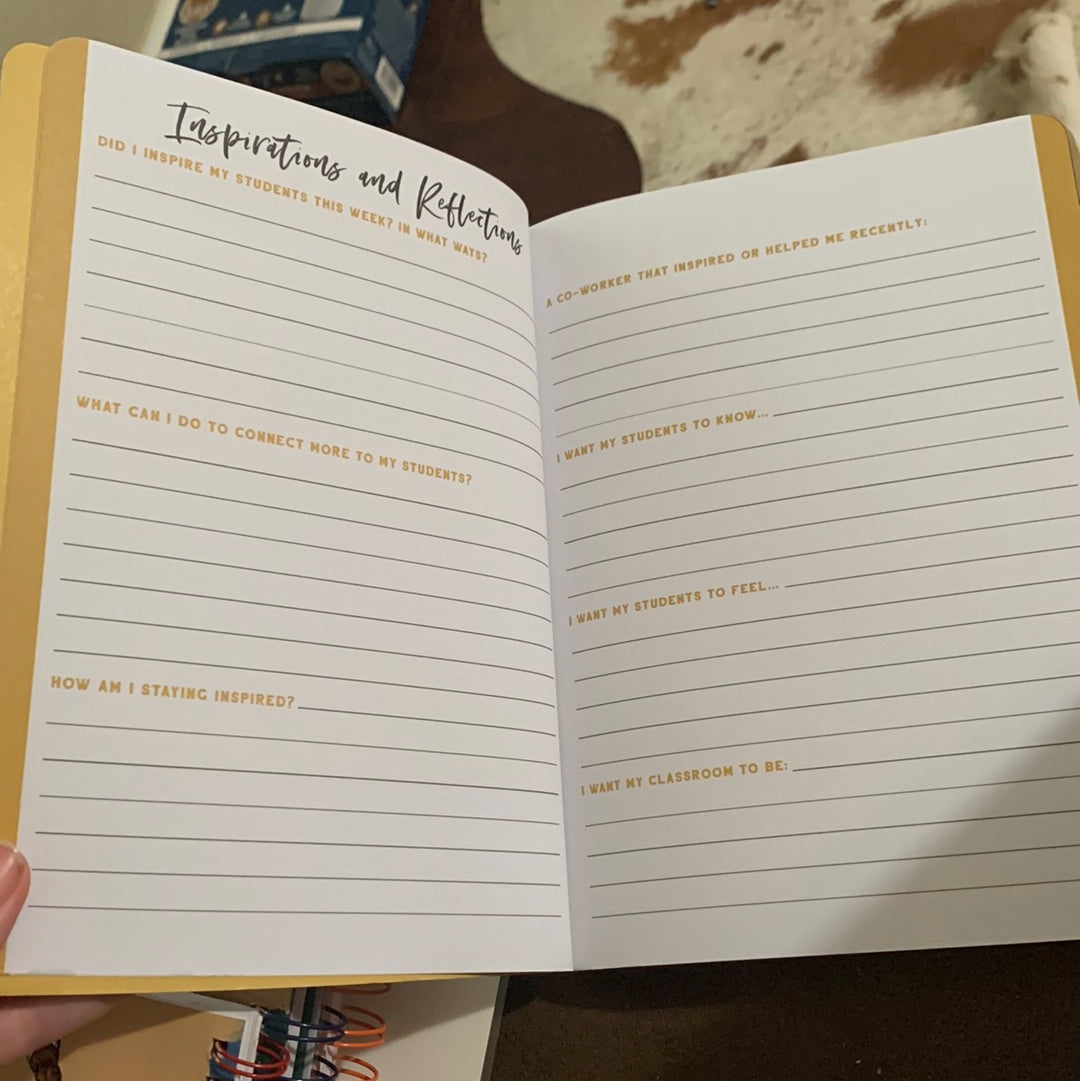 Inspirations and Reflections
DID I INSPIRE MY STUDENTS THIS WEEK? IN WHAT WAYS?
WHAT CAN I DO TO CONNECT MORE TO MY STUDENTS?
HOW AM I STAYING INSPIRED?
A CO-WORKER THAT INSPIRED OR HELPED ME RECENTLY:
I WANT MY STUDENTS TO KNOW...
I WANT MY STUDENTS TO FEEL...
I WANT MY CLASSROOM TO BE: